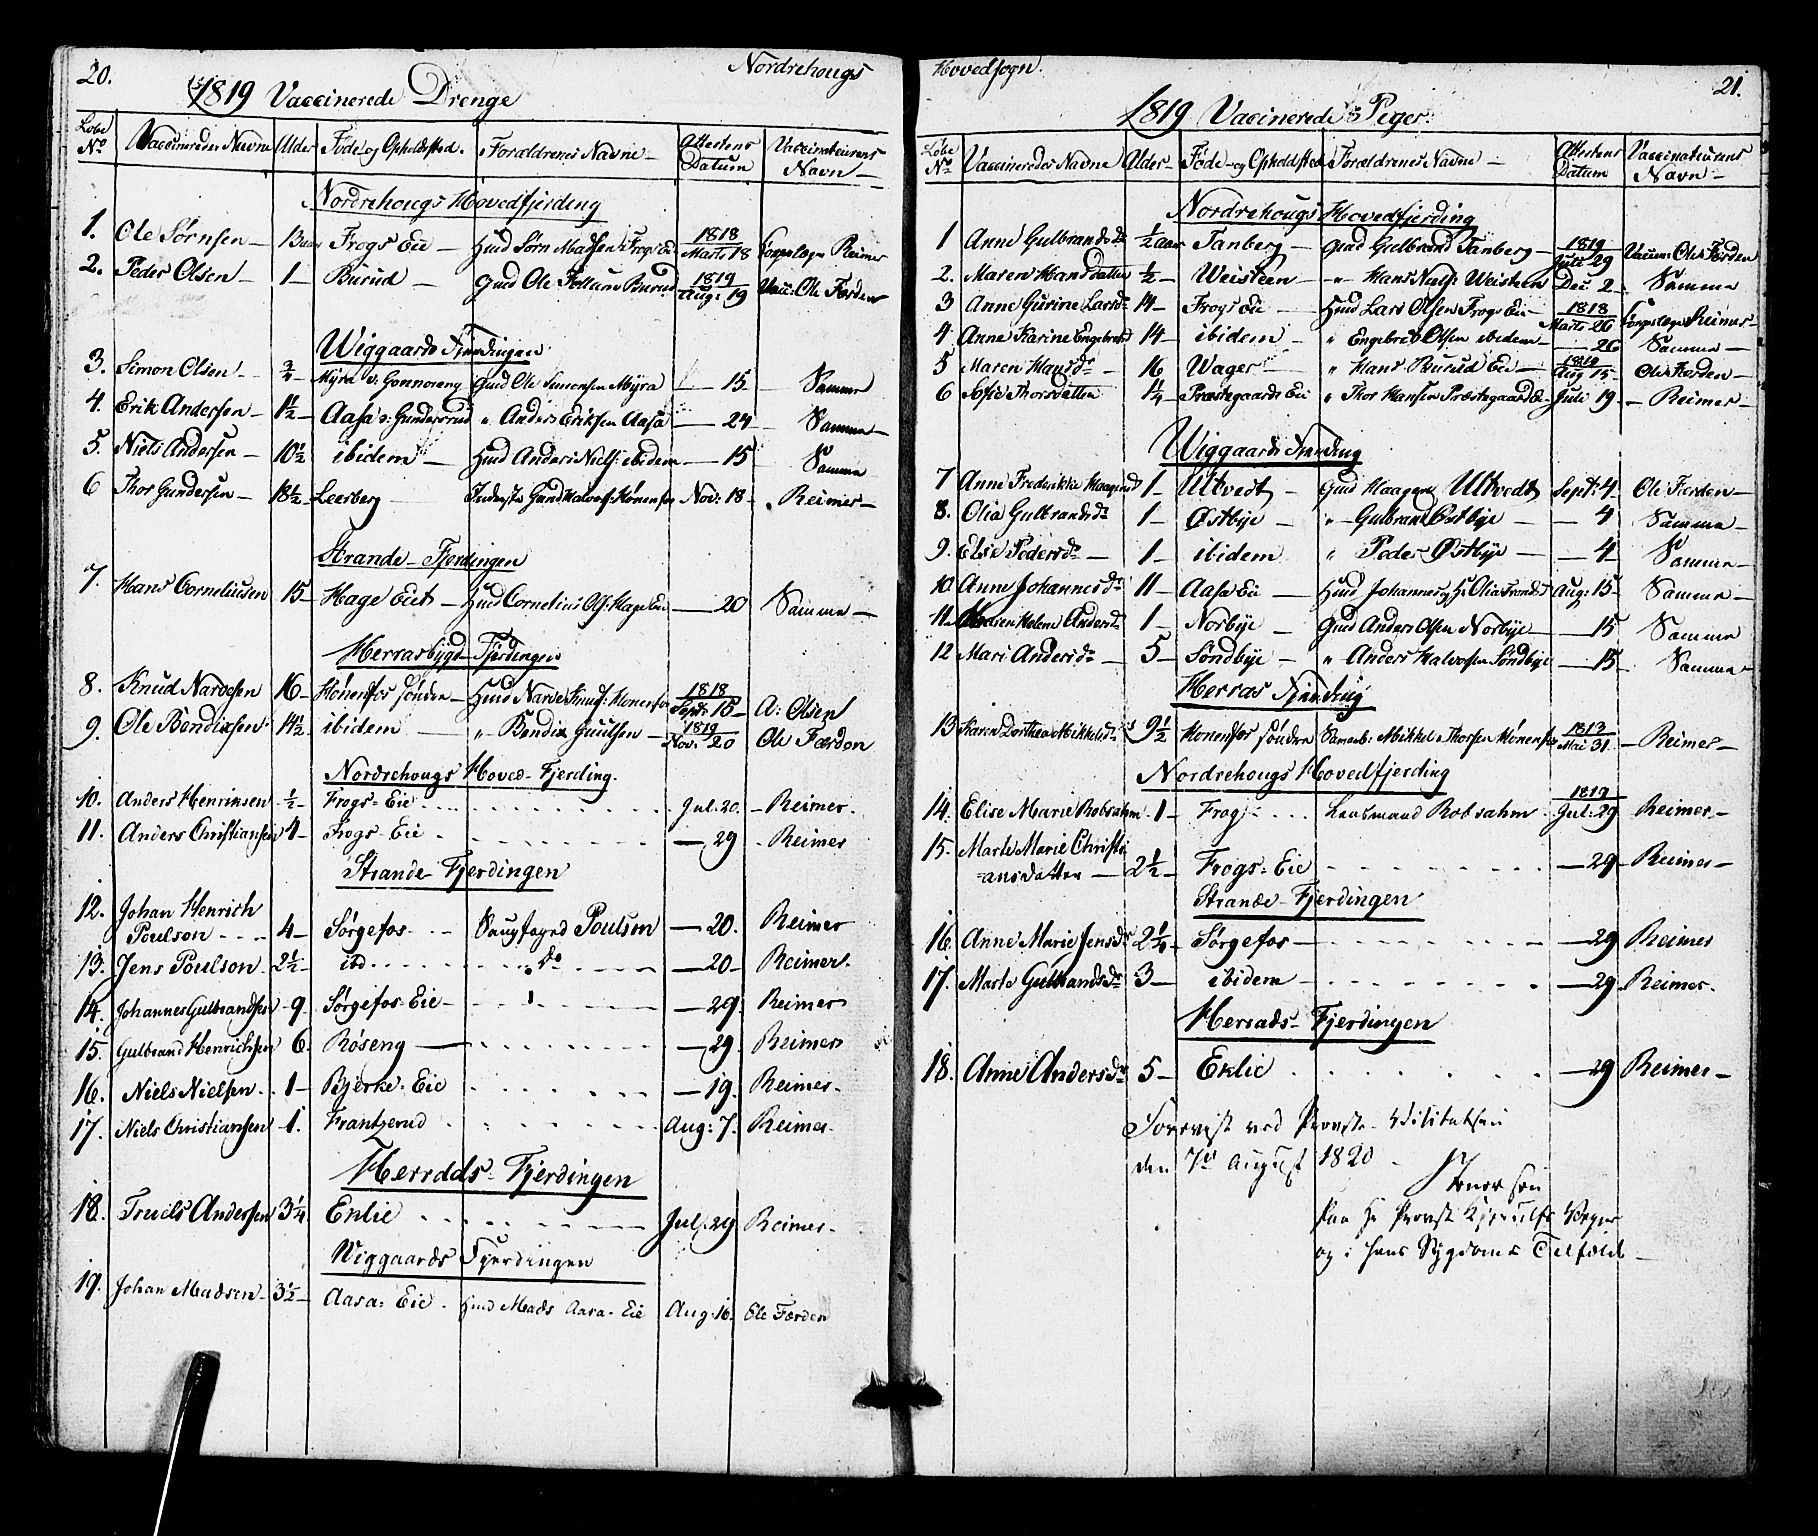 20. Nordrehougs
1819 Vaccinerede Drenge
Løbe No Vaccineredes Navne Alder Føde og Opholdsted. Forældrenes Navne Attestens Datum Vaccinateurens Navn
Nordrehougs Hovedfjerding
1. Ole Sørnsen 13 Frogs Eie Huusmd Sørn Madsen Frogs Ei 1818 Marts 18 Reimer
2. Peder Olsen 1 Burud Gmd Ole Burud 1819 Aug: 19 Vacc: Ole Færden
Wiggaards Fjerdingen
3. Simon Olsen 3/4 Myra Gmd Ole Simensen Myra 15 Samme
4. Erik Andersen 1 1/2 Aasa v: Gundersrud " Anders Eriksen Aasa 24 Samme
5. Niels Andersen 10 1/2 ibidem Hmd Anders Niels: ibidem 15 Samme
6 Thor Gundersen 18 1/2 Leerberg Nov: 18 Reimer
Strande Fjerdingen
7. Hans Corneliusen 15 Hage Eiet Hmd Cornelius Ols: Hage Eie 20 Samme
Herrasbygd Fjerdingen
8. Knud Narvesen 16 Hønenfos søndre Hmd Narve Knuds: Hønenfos 1818 Septr 15 A: Olsen
9. Ole Bendixsen 14 1/2 ibidem " Bendix Guulsen 1819 Nov: 20 Ole Færden
Nordrehougs Hoved-Fjerding.
10. Anders Henriksen 1/2 Frogs-Eie Jul: 20. Reimer.
11. Anders Christiansen 4 Frogs-Eie 29 Reimer
Strande Fjerdingen
12. Johan Henrich
Poulson 4 Sørgefos Saugfoged Poulson 20. Reimer
13. Jens Poulson 2 1/2 ibd do 20 Reimer.
14. Johannes Gulbrandsen 9. Sørgefos-Eie 29. Reimer
15. Gulbrand Henrichsen 6. Røseng 29. Reimer
16. Niels Nielsen 1 Bjerke-Eie 19. Reimer
17. Niels Christiansen 1. Frantzerud Aug: 7. Reimer
Herrads-Fjerdingen
18. Truels Andersen 3 1/4 Eklie Jul: 29 Reimer
Wiggaards Fjerdingen
19. Johan Madsen 3 1/2 Aasa-Eie Hmd Mads Aasa-Eie Aug: 16. Ole Færden
Hovedsogn. 21.
1819 Vaccinerede Piger.
Løbe No Vaccineredes Navne Alder Føde og Opholdsted Forældrenes Navne Attestens Datum Vaccinateurens Navn
Nordrehougs Hovedfjerding
1 Anne Gulbrandsdr 1/2 aar Tanberg Gmd Gulbrand Tanberg 1819 Juli 29 Vaccin: Ole Færden
2. Maren Hansdatter 1/2 Weisteen " Hans Niels: Weisteen Dec 2 Samme
3 Anne Gurine Larsdr 14 Frogs Eie Hmd Lars Olsen Frogs Eie 1818 Marts 26 Reimer
4 Anne Karine Engebretsd 14 ibidem " Engebret Olsen ibidem 26 Samme
5 Maren Hansdr 16 Wager " Hans Burud Eie 1819 Aug 15 Ole Færden
6 Sofie Thorsdatter 1/4 Præstegaards Eie " Thor Hansen Præstegaards E. Juli 19 Reimer
Wiggaards Fjerding
7 Anne Frederikke Haagensd 1 Ultvedt Gmd Haagen Ultvedt Sept: 4 Ole Færden
8. Olia Gulbrandsdr 1 Østbye " Gulbrand Østbye 4 Samme
9. Elsie Pedersdr 1 ibidem " Peder Østbye 4 Samme
10. Anne Johannesdr 11 Aasa Eie Hmd Johannes Aug: 15 Samme
11. Helene Andersdr 1 Norbye Gmd Anders Olsen Norbye 15 Samme
12 Mari Andersdr 5 Søndbye " Anders Halvorsen Søndbye 15 Samme
Herras Fjerding
13 Karen Dorthea Mikkelsdr 9 1/2 Hønenfos søndre Mikkel Thorsen Hønenfos 1813 Mai 31 Reimer
Nordrehougs Hovedfjerding
14. Elise Marie Robsahm 1 Frog Lensmand Robsahm 1819 Jul: 29 Reimer
15. Marte Marie Christi
=ansdatter 2 1/2 Frogs-Eie 29 Reimer
Strande-Fjerdingen
16. Anne Marie Jensdr 2 1/4 Sørgefos 29 Reimer
17. Marte Gulbrandsdr 3 ibidem 29 Reimer.
Herrads-Fjerdingen
18. Anne Andersdr 5 Eklie 29 Reimer
Foreviist ved Provste Visitatsen
den 7de August 1820
paa Hr Provst Kjerulfs Vegne
og i hans Sygdoms Tilfælde